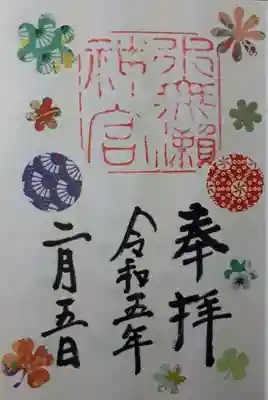 奉拝
水無瀬
神宮
令和五年
二月五日